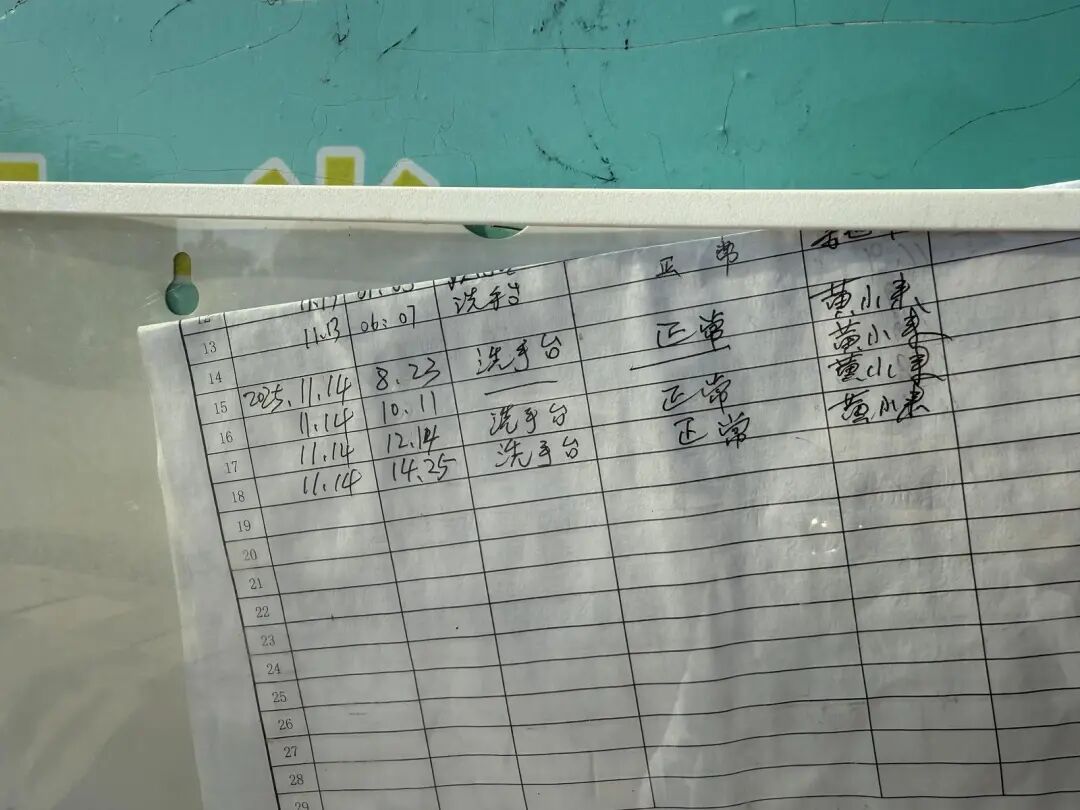 11.13
13 11.13 06:07 洗手台 正常
14
15 2025.11.14 8.23 洗手台 正常 黄小
16 11.14 10.11 — — 黄小
17 11.14 12.14 洗手台 正常 黄小
18 11.14 14.25 洗手台 正常 黄小
19
20
21
22
23
24
25
26
27
28
29